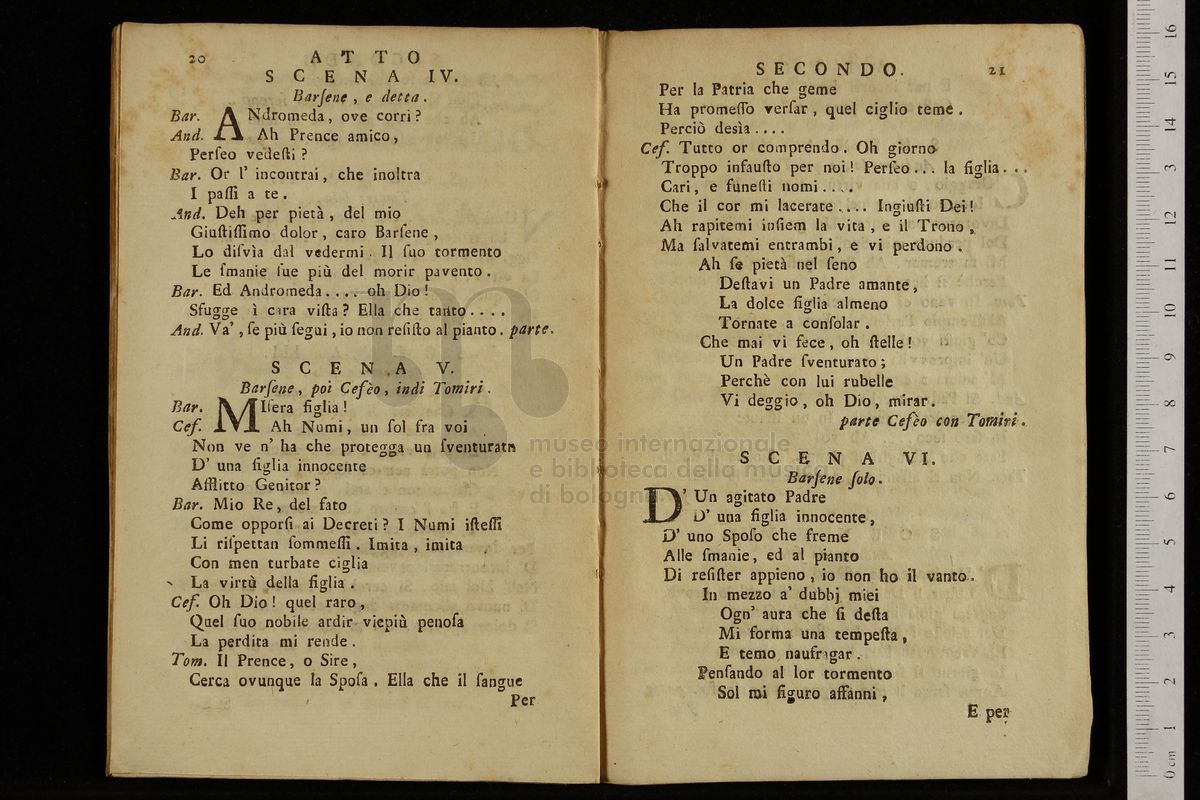 20
ATTO
SCENA IV.
Barſene, e detta.
Bar. ANdromeda, ove corri?
And. Ah Prence amico,
Perſeo vedeſti?
Bar. Or l' incontrai, che inoltra
I paſſi a te.
And. Deh per pietà, del mio
Giuſtiſſimo dolor, caro Barſene,
Lo diſvìa dal vedermi. Il ſuo tormento
Le ſmanie ſue più del morir pavento.
Bar. Ed Andromeda.... oh Dio!
Sfugge ì cara viſta? Ella che tanto....
And. Va', ſe più ſegui, io non reſiſto al pianto. parte.
SCENA V.
Barſene, poi Cefèo, indi Tomiri.
Bar. MIſera figlia!
Cef. Ah Numi, un ſol fra voi
Non ve n' ha che protegga un ſventurato
D' una figlia innocente
Afflitto Genitor?
Bar. Mio Re, del fato
Come opporſi ai Decreti? I Numi iſteſſi
Li riſpettan ſommeſſi. Imita, imita
Con men turbate ciglia
La virtù della figlia.
Cef. Oh Dio! quel raro,
Quel ſuo nobile ardir viepiù penoſa
La perdita mi rende.
Tom. Il Prence, o Sire,
Cerca ovunque la Spoſa. Ella che il ſangue
Per
SECONDO.
21
Per la Patria che geme
Ha promeſſo verſar, quel ciglio teme.
Perciò desìa....
Cef. Tutto or comprendo. Oh giorno
Troppo infauſto per noi! Perſeo... la figlia...
Cari, e funeſti nomi....
Che il cor mi lacerate.... Ingiuſti Dei!
Ah rapitemi inſiem la vita, e il Trono,
Ma ſalvatemi entrambi, e vi perdono.
Ah ſe pietà nel ſeno
Deſtavi un Padre amante,
La dolce figlia almeno
Tornate a conſolar.
Che mai vi fece, oh ſtelle!
Un Padre ſventurato;
Perchè con lui rubelle
Vi deggio, oh Dio, mirar.
parte Cefèo con Tomiri.
SCENA VI.
Barſene ſolo.
D' Un agitato Padre
D' una figlia innocente,
D' uno Spoſo che freme
Alle ſmanie, ed al pianto
Di reſiſter appieno, io non ho il vanto.
In mezzo a' dubbj miei
Ogn' aura che ſi deſta
Mi forma una tempeſta,
E temo naufragar.
Penſando al lor tormento
Sol mi figuro affanni,
E per
museo internazionale
e biblioteca della musica
di bologna
0 cm 1 2 3 4 5 6 7 8 9 10 11 12 13 14 15 16